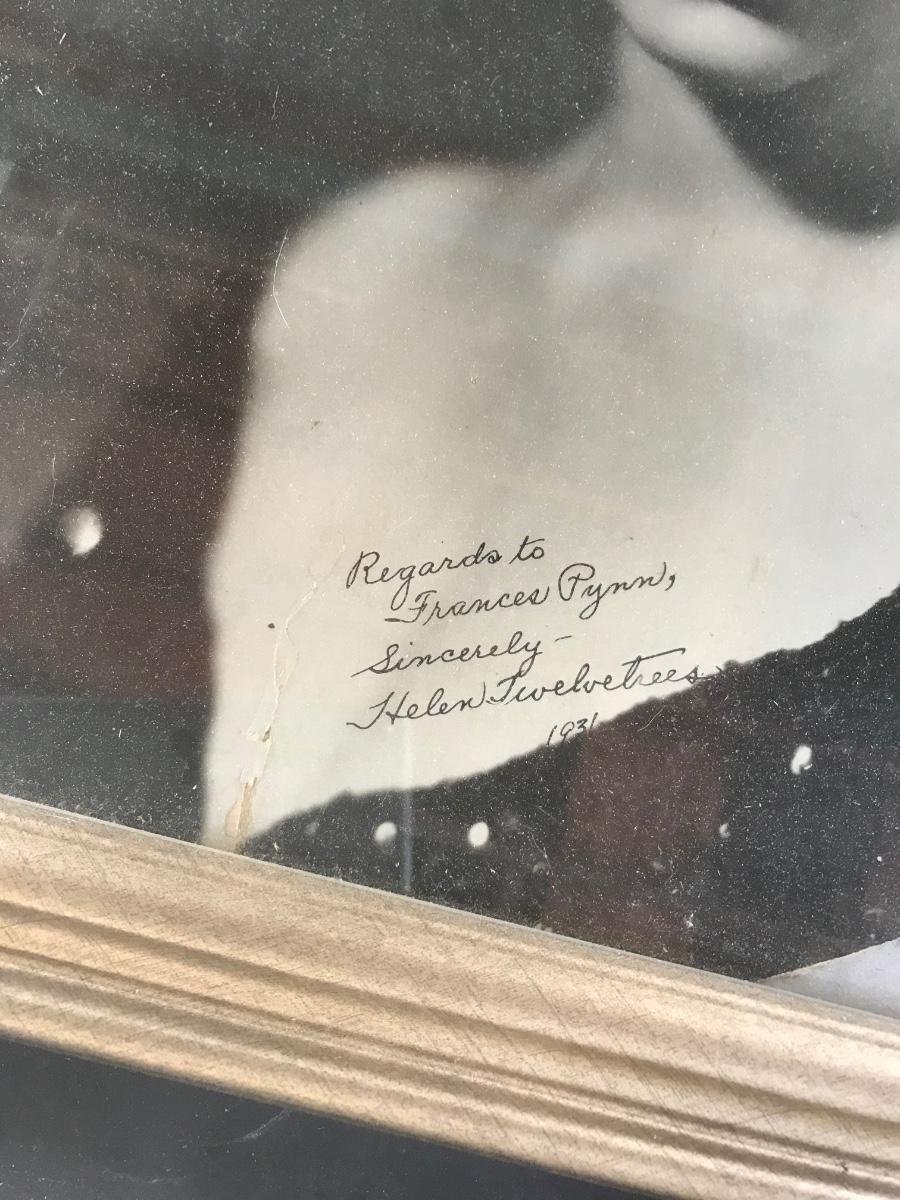 Regards to
Frances Pynn,
Sincerely -
Helen Twelvetrees
1931